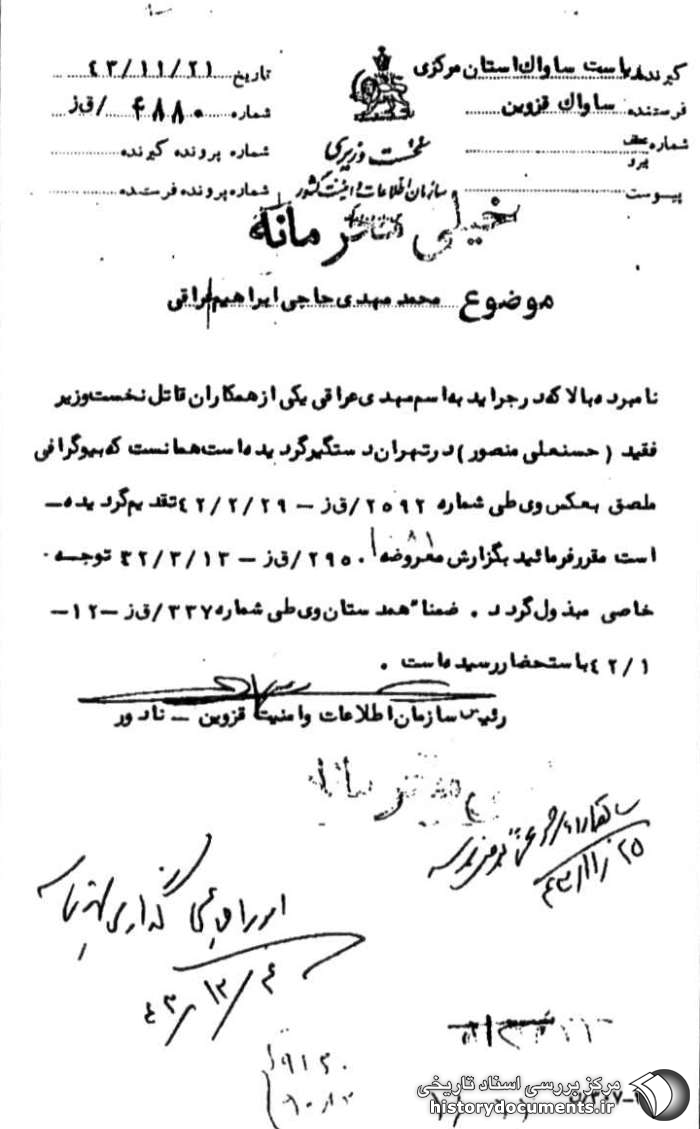 گیرنده ریاست ساواك استان مرکزی
فرستنده ساواك قزوین
شماره عطف
پیرو
پیوست
نخست وزیری
سازمان اطلاعات و امنیت کشور
تاریخ ۴۳/۱۱/۲۱
شماره ۴۸۸۰/ق ز
شماره پرونده گیرنده
شماره پرونده فرستنده
خیلی محرمانه
موضوع محمد مهدی حاجی ابراهیم عراقی
نامبرده بالا که در جراید به اسم مهدی عراقی یکی از همکاران قاتل نخست وزیر
فقید (حسنعلی منصور) در تهران دستگیر گردیده است همانست که بیوگرافی
ملصق بعکس وی طی شماره ۲۵۹۲/ق ز – ۴۲/۲/۲۹ تقدیم گردیده –
است مقرر فرمائید بگزارش معروضه ۲۹۵۰/ق ز – ۴۲/۳/۱۳ توجه
خاصی مبذول گردد . ضمنا" همدستان وی طی شماره ۳۳۷/ق ز – ۱۲ –
۴۲/۱ باستحضار رسیده است .
رئیس سازمان اطلاعات و امنیت قزوین – نادور
محرمانه
۴۳/۱۱/۲۵
اوراق
۴۳/۱۲/۴
مرکز بررسی اسناد تاریخی
historydocuments.ir